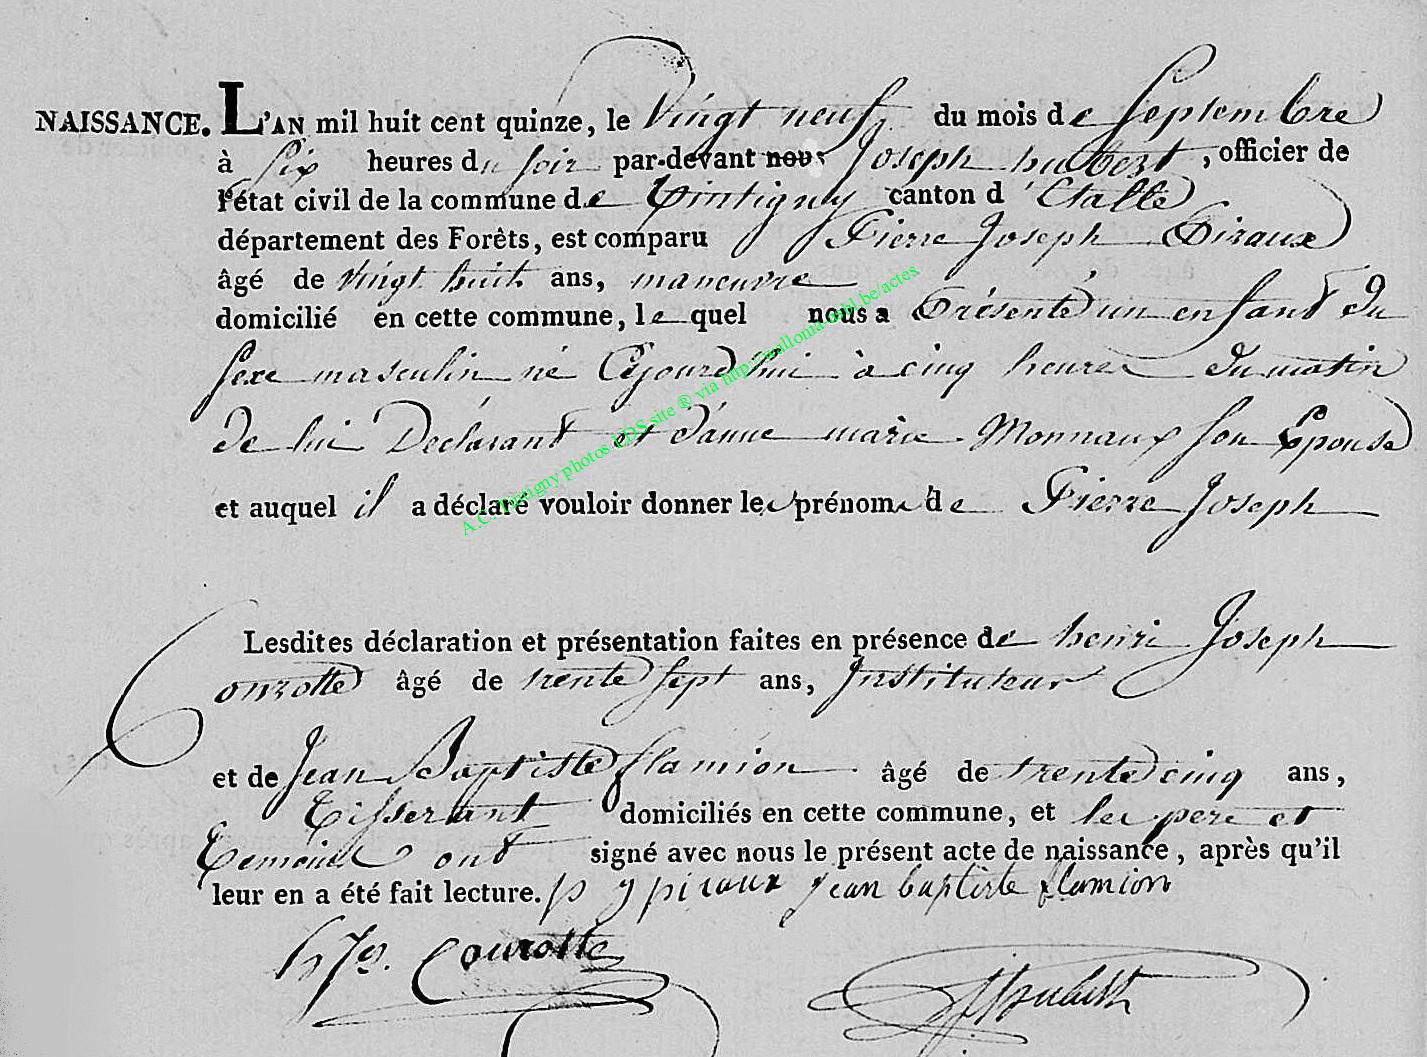 NAISSANCE. L'AN mil huit cent quinze, le Vingt neuf du mois de Septembre
à six heures du soir par-devant nous Joseph hubert, officier de
l'état civil de la commune de Tintigny canton d'Etalle
département des Forêts, est comparu Pierre Joseph Piraux
âgé de vingt huit ans, maneuvre
domicilié en cette commune, le quel nous a Présenté un enfant du
sexe masculin né Cejourd'hui à cinq heures du matin
de lui Déclarant et d'anne marie Monnaux son Epouse
et auquel il a déclaré vouloir donner les prénoms de Pierre Joseph
A.C. Tintigny photos LDS site ® via http://wallonia-asbl.be/actes
Lesdites déclaration et présentation faites en présence de henri Joseph
Courotte âgé de trente sept ans, Instituteur
et de Jean Baptiste flamion âgé de trente cinq ans,
Tisserant domiciliés en cette commune, et les pere et
Temoins ont signé avec nous le présent acte de naissance, après qu'il
leur en a été fait lecture. p j piraux jean baptiste flamion
hJs. Courotte
JHubert